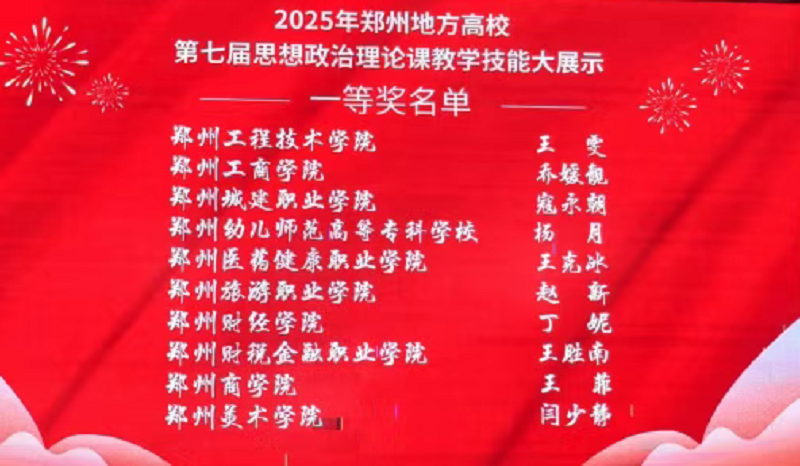 2025年郑州地方高校
第七届思想政治理论课教学技能大展示
一等奖名单
郑州工程技术学院 王 雯
郑州工商学院 乔媛靓
郑州城建职业学院 寇永朝
郑州幼儿师范高等专科学校 杨 月
郑州医药健康职业学院 王克冰
郑州旅游职业学院 赵 新
郑州财经学院 丁 妮
郑州财税金融职业学院 王胜南
郑州商学院 王 菲
郑州美术学院 闫少静